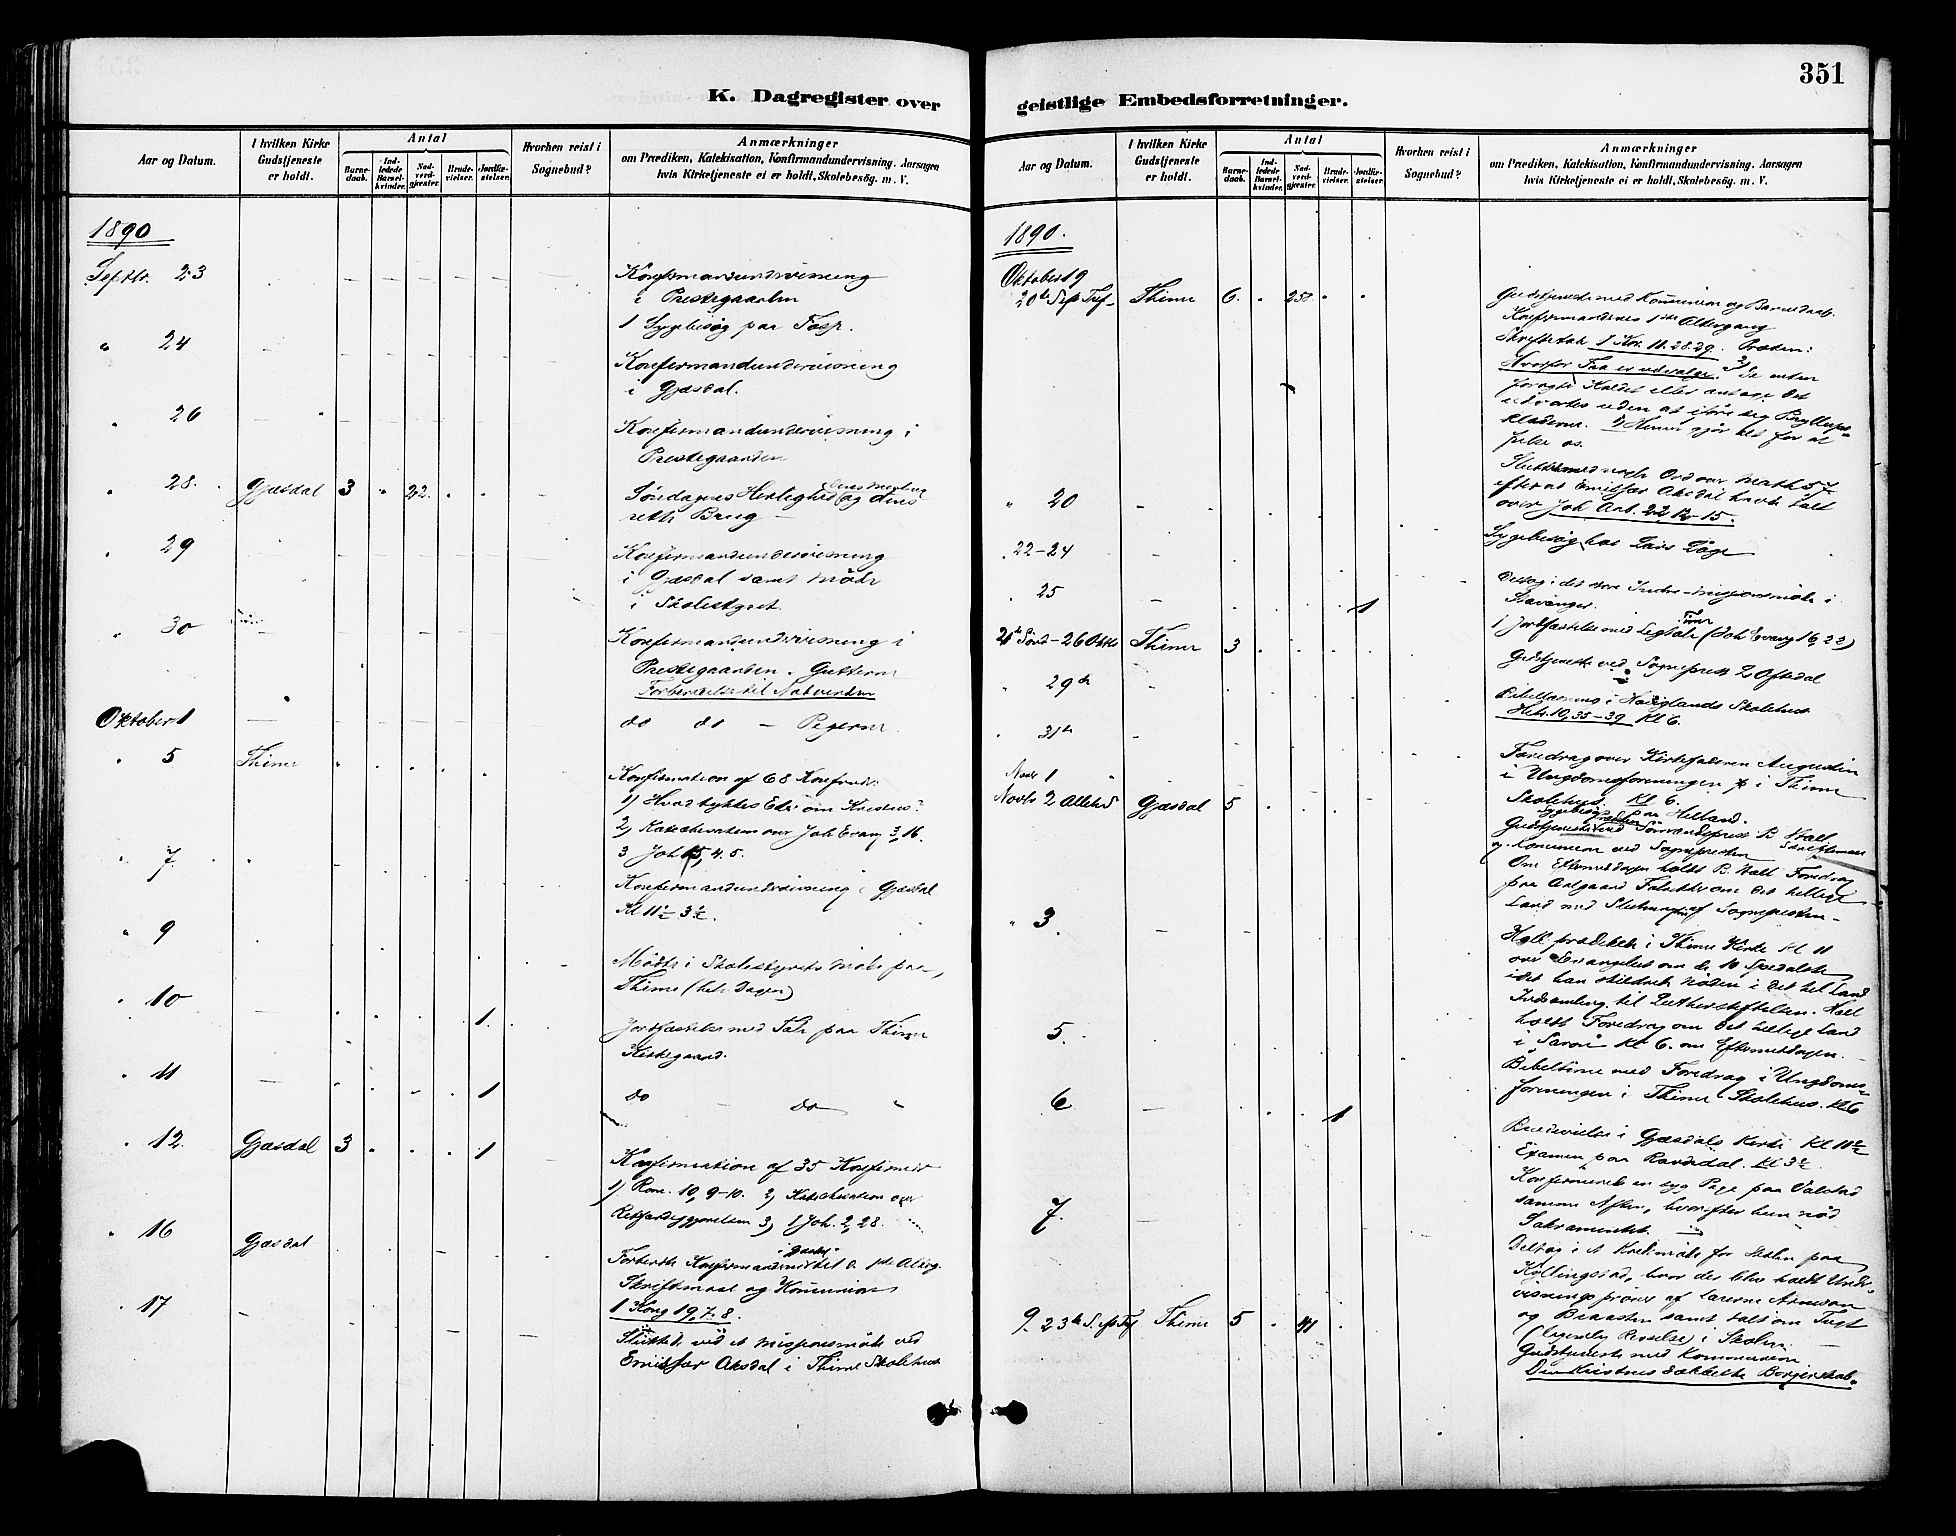 351
K. Dagregister over
geistlige Embedsforretninger.
Aar og Datum.
I hvilken Kirke Gudstjeneste er holdt.
Antal
Barnedaab.
Indledede Barselkvinder.
Nadverdgjæster.
Brudevielser.
Jordfæstelser.
Hvorhen reist i Sognebud?
Anmærkninger
om Prædiken, Katekisation, Konfirmandundervisning, Aarsagen
hvis Kirketjeneste ei er holdt, Skolebesög. m. V.
1890
Septbr. 23
Konfirmandundervisning
i Prestegaarden
1 Sygebesög paa Fosp.
" 24
Konfirmandundervisning
i Gjæsdal.
" 26
Konfirmandundervisning i
Prestegaarden
" 28. Gjæsdal 3 " 22. " "
Söndagens Herlighed og dens
rette Brug
" 29
Konfirmandundervisning
i Gjæsdal samt Möde
i Skolestyret.
" 30
Konfirmandundervisning i
Prestegaarden. Gutterne
Forberedelse til Nadverden
Oktober 1
do do - Pigerne.
" 5 Thime
Konfirmation af 68 Konfirmander
1) Hvad tykkes Eder om Kristus?
2) Katechisation over Joh Evang 3, 16.
3 Joh 15, 4. 5.
" 7.
Konfirmandundervisning i Gjæsdal
Kl 11½ 3½.
" 9
Mödte i Skolestyrets Möde paa
Thime (hele Dagen)
" 10 1.
Jordfæstelse med Tale paa Thime
Kirkegaard.
" 11 1
do do "
" 12. Gjæsdal 3 1
Konfirmation af 35 Konfirmander
1) Rom. 10, 9-10. 2) Katechisation over
Retfærdiggjørelsen 3) 1 Joh. 2, 28.
" 16 Gjæsdal
i Gjæsdal
Skriftemaal og Kommunion
1 Kong 19, 7. 8.
" 17
Sluttede ved et Missionsmöde ved
Emissær Aksdal i Thime Skolehus
Aar og Datum.
I hvilken Kirke Gudstjeneste er holdt.
Antal
Barnedaab.
Indledede Barselkvinder.
Nadverdgjæster.
Brudevielser.
Jordfæstelser.
Hvorhen reist i Sognebud?
Anmærkninger
om Prædiken, Katekisation, Konfirmandundervisning, Aarsagen
hvis Kirketjeneste ei er holdt, Skolebesög. m. V.
1890.
Oktober 19
20de S. p. Tref. Thime 6. " 250 " "
Gudstjeneste med Kommunion og Barnedaab.
Konfirmandernes 1ste Altergang
Skriftetale 1 Kor. 11. 28. 29. Præken:
Hvorfor Faa er udvalgte. De enten
foragte Kaldet eller antage det
udvortes uden at iföre sig Bryllups-
klæderne. 2) Herren gjör alt for at
frelse os.
" 20
Sluttede med nogle Ord over Math 5, 7
efterat Emissær Aksdal havde talt
over Joh Aab. 22, 12-15.
Sygebesög hos Lars Löge
" 22-24
Deltog i det store Indre-Missionsmöde i
Stavanger.
" 25 1
1 Jordfæstelse med Ligtale (Joh Evang 16, 22)
Time
21de Sönd - 26 Oktbr Thime 3
Gudstjeneste ved Sogneprest Z Oftedal
" 29de
Bibellæsning i Hadeglands Skolehus
Hebr. 10, 35-39 Kl 6.
" 31te
Foredrag over Kirkefaderen Augustin
i Ungdomsforeningen i Thime
Skolehus. Kl 6.
Novbr 1
Sygebesög paa Helland.
Novbr 2 Allehel Gjæsdal 5
Gudstjeneste ved Sömandsprest B Hall
og Kommunion ved Sognepresten Skriftemaal
Om Eftermiddagen holdt B. Hall Foredrag
paa Aalgaard Fabrikker om det hellige
Land med Slutning af Sognepresten
" 3.
Hall prædikede i Thime Kirke Kl 11
over Evangeliet om de 10 Spedalske
idet han skildrede Nöden i det hel Land
Indsamling til Lutherstiftelsen. Hall
holdt Foredrag om det hellige Land
i Saron Kl 6. om Eftermiddagen.
5.
Bibeltime med Foredrag i Ungdoms-
foreningen i Thime Skolehus. Kl 6
6 1
Brudevielse i Gjæsdals Kirke Kl 11½
Examen paa Ravndal. Kl 3½
Konfirmerede en syg Pige paa Valstad
samme Aften, hvorefter hun nöd
Sakramentet.
7.
Deltog i et Kredsmöde for Skolen paa
Kyllingstad, hvor der blev holdt Under-
visningspröver af Lærerne Arneson
og Braasten samt talt om Tugt
(legemlig Revselse) i Skolen.
9. 23de S. p. Tref Thime 5 41
Gudstjeneste med Kommunion
Den Kristnes dobbelte Borgerskab.